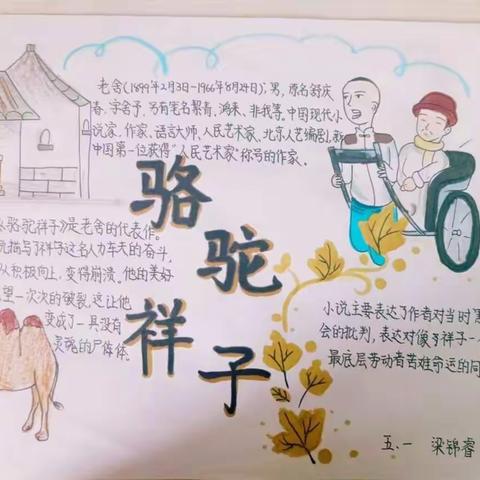 老舍(1899年2月3日-1966年8月24日),男,原名舒庆
春,字舍予,另有笔名絜青、鸿来、非我等。中国现代小
说家、作家、語言大师、人民艺术家、北京人艺编剧,新
中国第一位获得"人民艺术家"称号的作家。
骆驼祥子
《骆驼祥子》是老舍的代表作。
描写了祥子这名人力车夫的奋斗,
从积极向上,变得崩溃。他的美好
望一次次的破裂,这让他
变成了一具没有
灵魂的尸体体
小说主要表达了作者对当时
会的批判,表达对像了祥子一
最底层劳动者苦难命运的同
五、一 梁锦睿